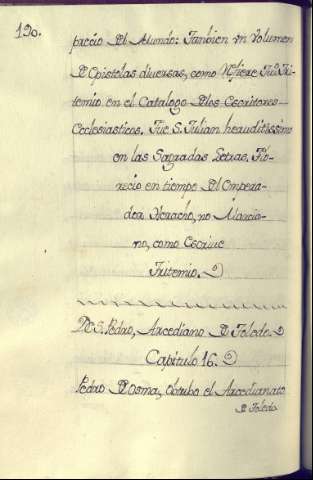 190.
precio Del Mundo: Tanbien vn Volumen
De Epistolas diuersas, como Refiere Tri-
temio en el Catalogo Delos Escritores
Ecclesiasticos, Fue S. Iulian heruditissimo
en las Sagradas Letras. Flo-
recio en tiempo Del Empera-
dor Heracho, no Marcia-
no, como Escriue
Tritemio.
De S. Pedro, Arcediano De Toledo.
Capitulo 16.
Pedro De Osma, Obtubo el Arcedianato
De Toledo